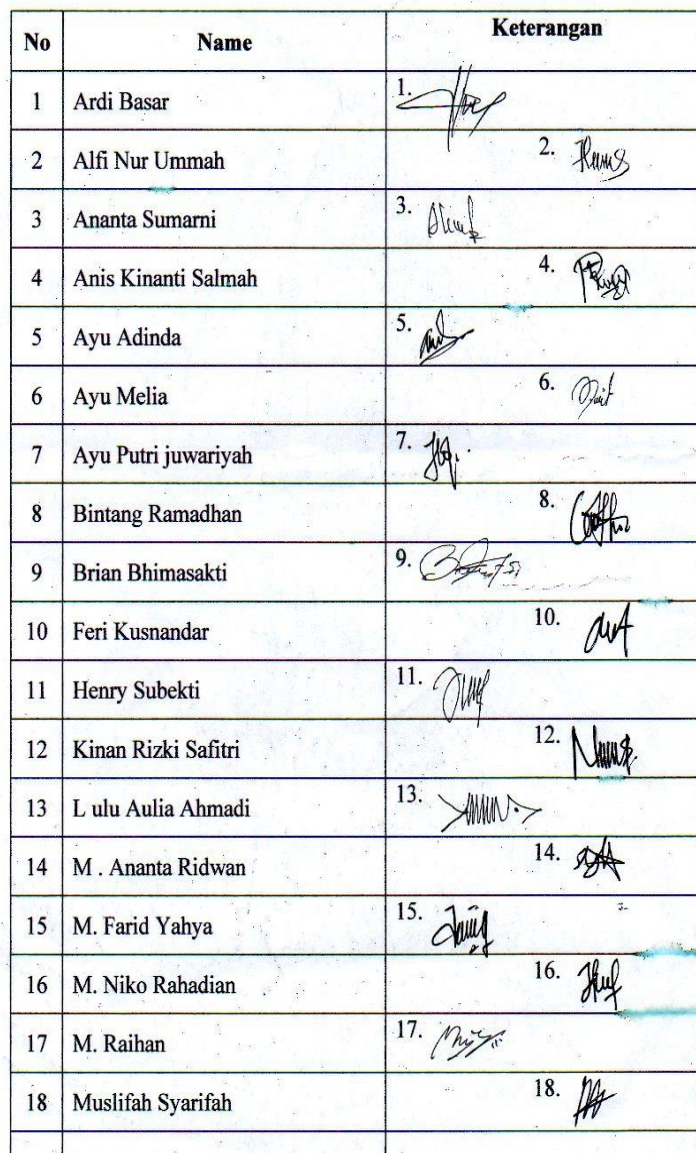 No Name Keterangan
1 Ardi Basar 1.
2 Alfi Nur Ummah 2.
3 Ananta Sumarni 3.
4 Anis Kinanti Salmah 4.
5 Ayu Adinda 5.
6 Ayu Melia 6.
7 Ayu Putri juwariyah 7.
8 Bintang Ramadhan 8.
9 Brian Bhimasakti 9.
10 Feri Kusnandar 10.
11 Henry Subekti 11.
12 Kinan Rizki Safitri 12.
13 L ulu Aulia Ahmadi 13.
14 M . Ananta Ridwan 14.
15 M. Farid Yahya 15.
16 M. Niko Rahadian 16.
17 M. Raihan 17.
18 Muslifah Syarifah 18.